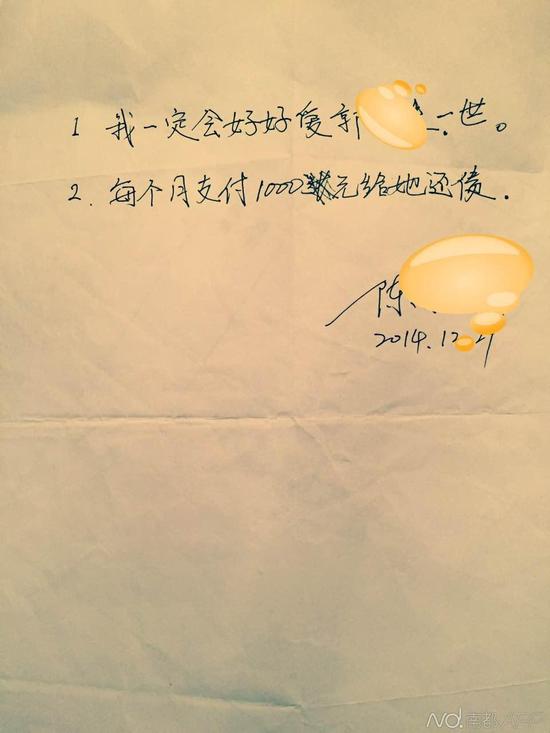 1 我一定会好好爱郭 一世。
2. 每个月支付1000元给她还债.
陈
2014.12
Nd.南都APP